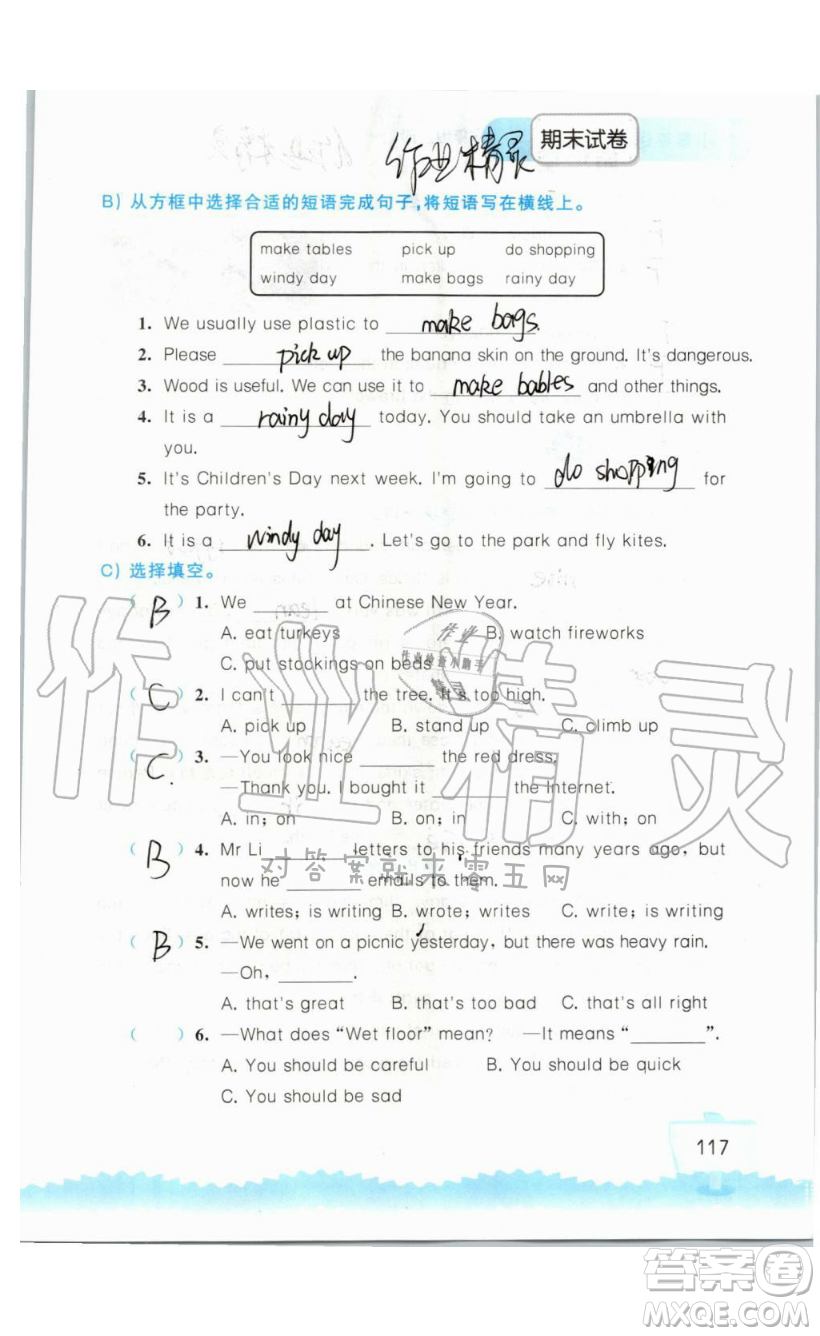 期末试卷
作业精灵
B) 从方框中选择合适的短语完成句子,将短语写在横线上。
make tables pick up do shopping
windy day make bags rainy day
1. We usually use plastic to make bags.
2. Please pick up the banana skin on the ground. It's dangerous.
3. Wood is useful. We can use it to make bables and other things.
4. It is a rainy day today. You should take an umbrella with
you.
5. It's Children's Day next week. I'm going to do shopping for
the party.
6. It is a windy day. Let's go to the park and fly kites.
C) 选择填空。
( B ) 1. We ________ at Chinese New Year.
A. eat turkeys B. watch fireworks
C. put stockings on beds
( C ) 2. I can't ________ the tree. It's too high.
A. pick up B. stand up C. climb up
( C ) 3. —You look nice ________ the red dress.
—Thank you. I bought it ________ the Internet.
A. in; on B. on; in C. with; on
( B ) 4. Mr Li ________ letters to his friends many years ago, but
now he ________ emails to them.
A. writes; is writing B. wrote; writes C. write; is writing
( B ) 5. —We went on a picnic yesterday, but there was heavy rain.
—Oh, ________.
A. that's great B. that's too bad C. that's all right
( ) 6. —What does “Wet floor” mean? —It means “________”.
A. You should be careful B. You should be quick
C. You should be sad
117
作业精灵
对答案就来零五网
答案圈
MXQE.COM